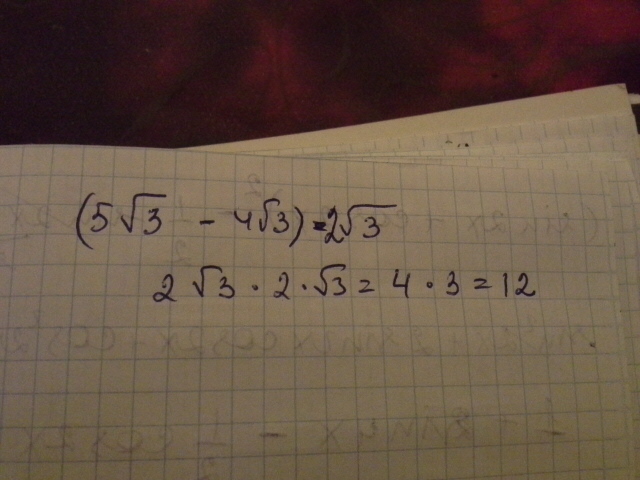 (5√3 - 4√3) = 2√3
2√3 · 2 · √3 = 4 · 3 = 12